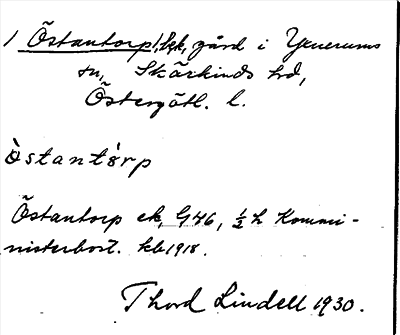 / Östantorp, kk, gård i Yxnerums
sn, Skärkinds hd,
Östergötl. l.
òstantórp
Östantorp ek, G 46, ½ h Kommi-
nisterbost. kb 1918.
Thord Lindell 1930.